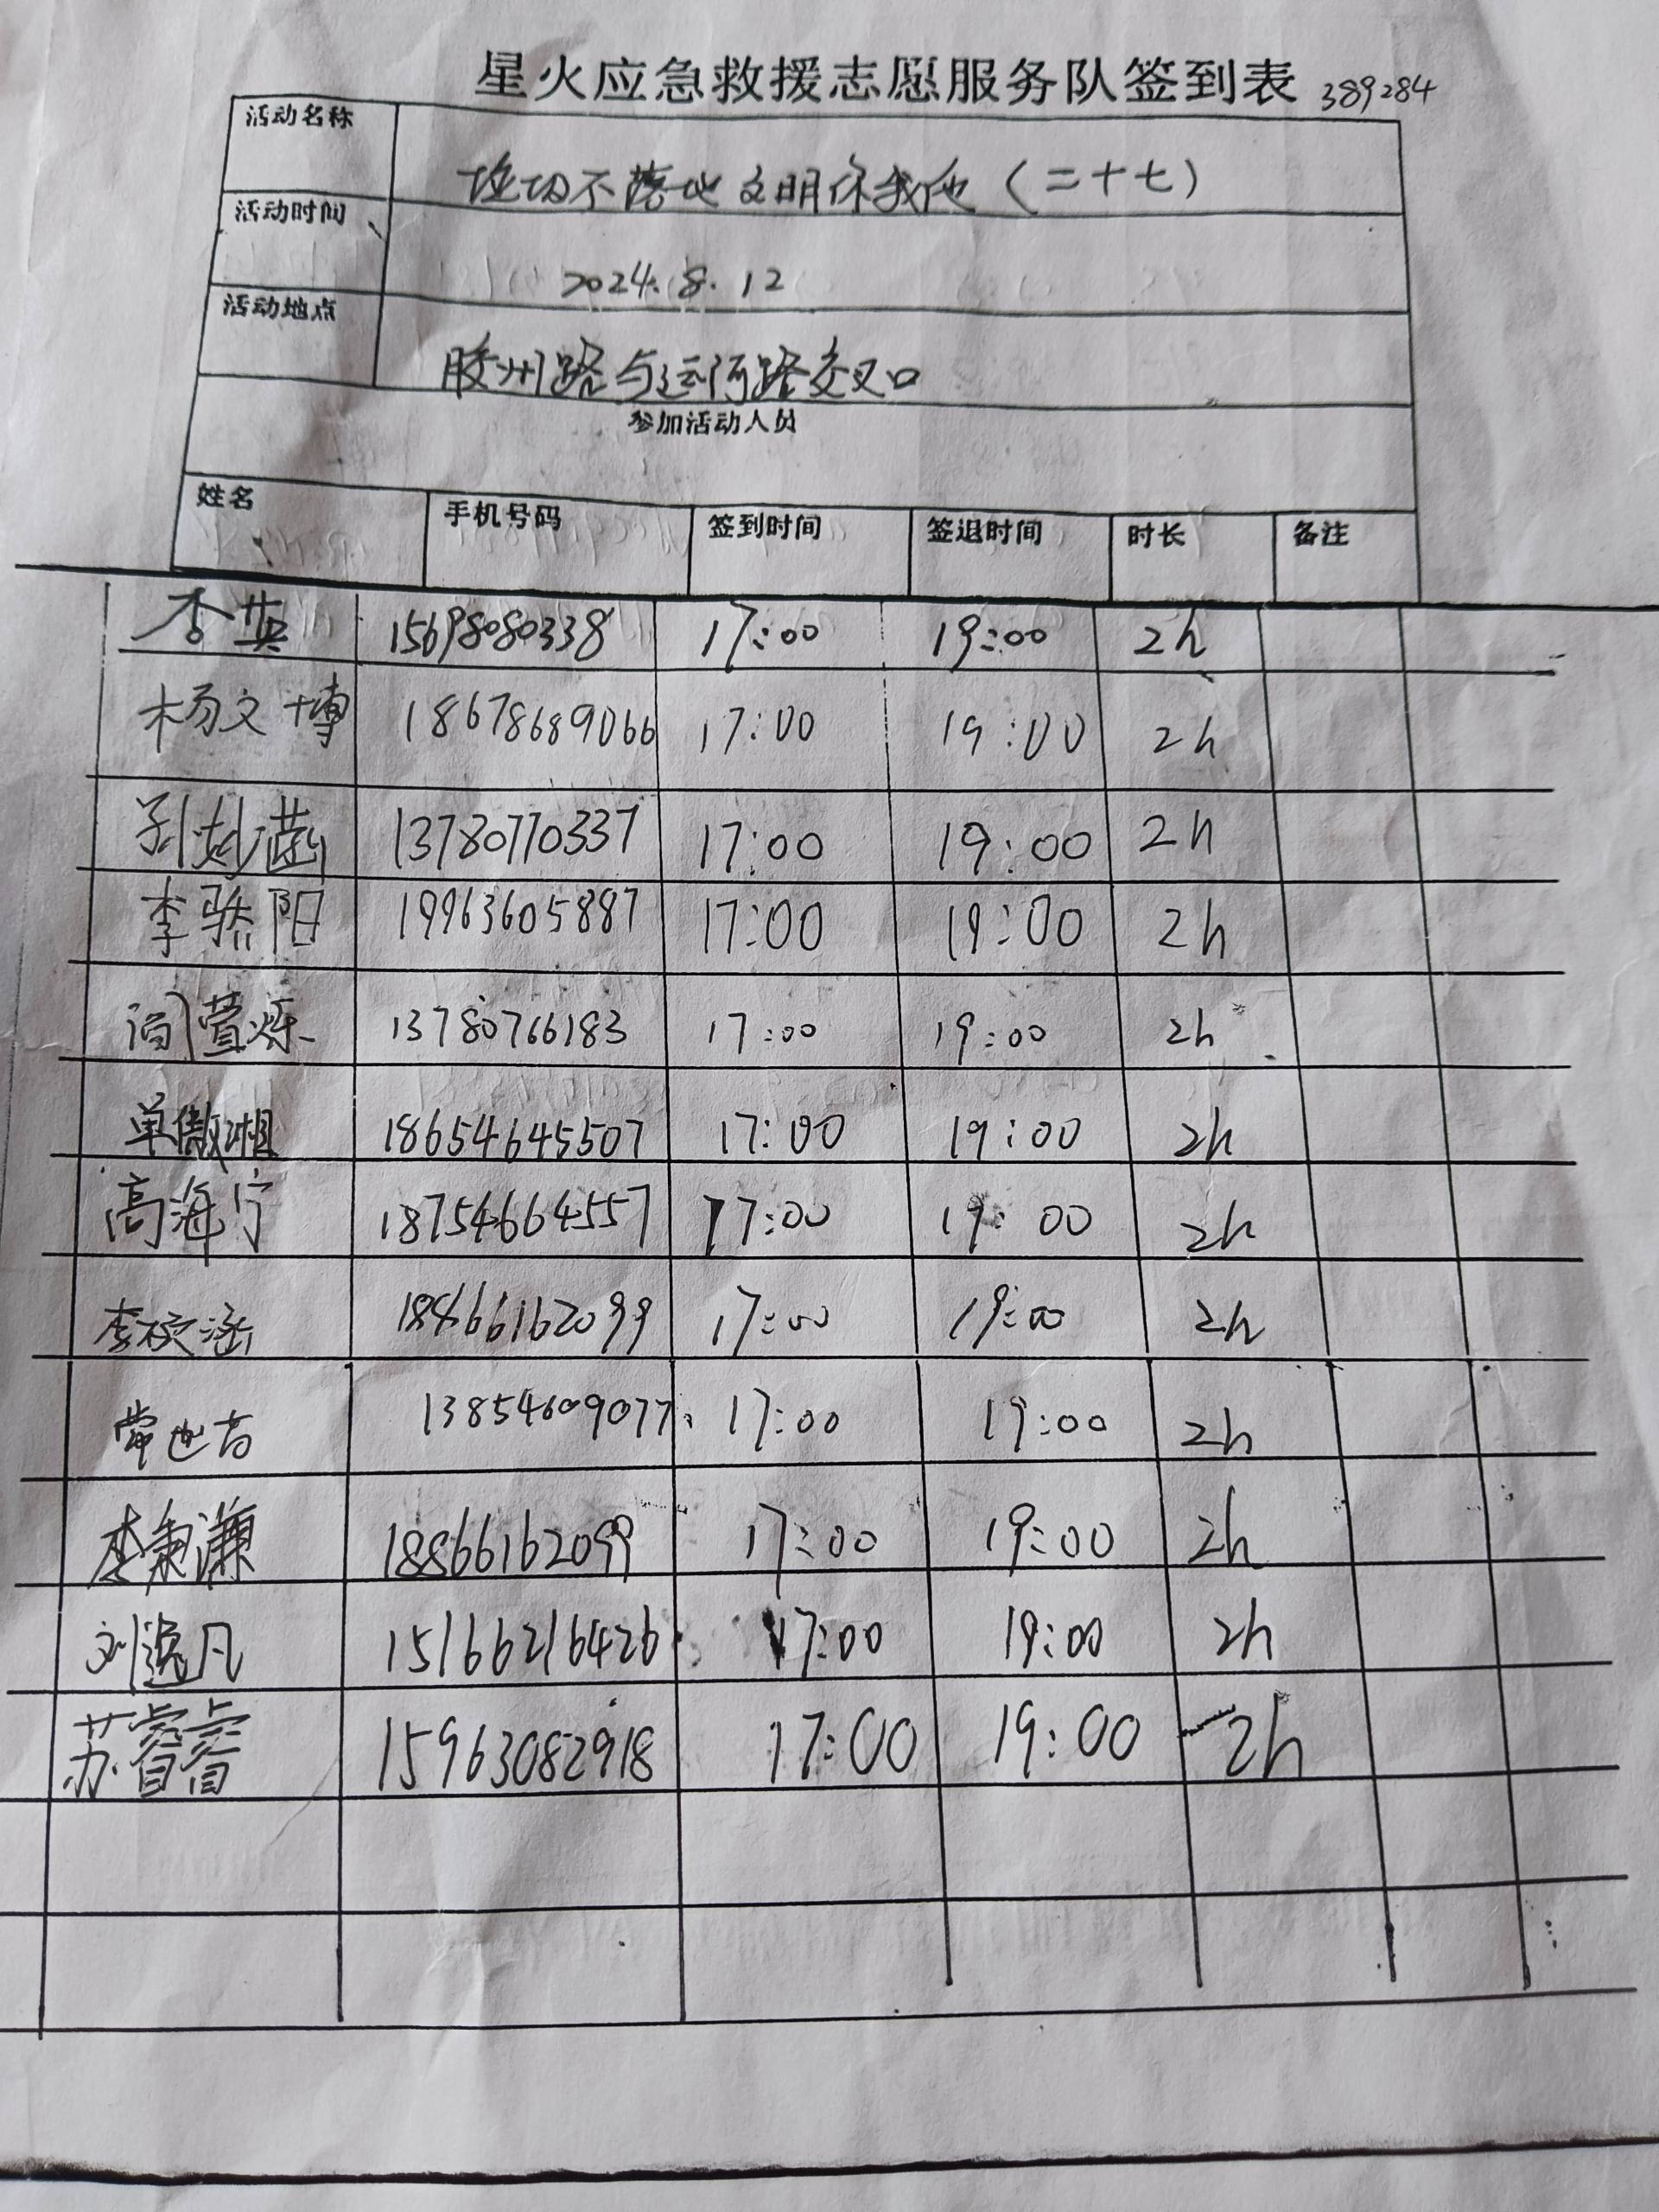 星火应急救援志愿服务队签到表 389284
活动名称 垃圾不落地 文明你我他（二十七）
活动时间 2024.8.12
活动地点 胶州路与运河路交叉口
参加活动人员
姓名 手机号码 签到时间 签退时间 时长 备注
李英 15698080338 17:00 19:00 2h
杨文博 18678689066 17:00 19:00 2h
13780770337 17:00 19:00 2h
李骄阳 19963605887 17:00 19:00 2h
13780766183 17:00 19:00 2h
18654645507 17:00 19:00 2h
高海宁 18754664557 17:00 19:00 2h
17:00 19:00 2h
13854609077 17:00 19:00 2h
李秉谦 18866162099 17:00 19:00 2h
刘逸凡 15166216426 17:00 19:00 2h
苏睿睿 15963082918 17:00 19:00 2h